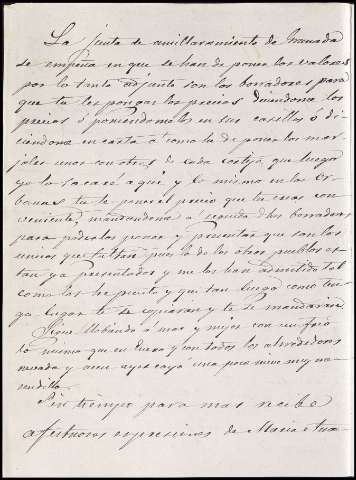 La junta de amillaramiento de Granada
se empeña en que se han de poner los valores
por lo tanto adjunto son los borradores para
que tu les pongas los precios dandome los
precios ó poniendomelos en sus casillas ó di-
ciendome en carta á como he de poner los mar-
jales unos con otros de cada cortijo que luego
yo lo sacaré aqui y lo mismo en las Ur-
banas tu le pones el precio que tu creas con-
veniente, mandandome á seguida dhos borradores
para poderlos poner y presentar que son los
unicos que faltan pues los de los otros pueblos es-
tan ya presentados y me los han admitido tal
como los he puesto y que tan luego como ten-
ga lugar te se copiarán y te se mandarán.
Sigue llobiendo á mas y mejor con un frio
lo mismo que en Enero y con todos los alrededores
nevados y aun ayer cayó una poca nieve muy me-
nudilla.
Sin tiempo para mas recibe
afectuosas expresiones de Maria